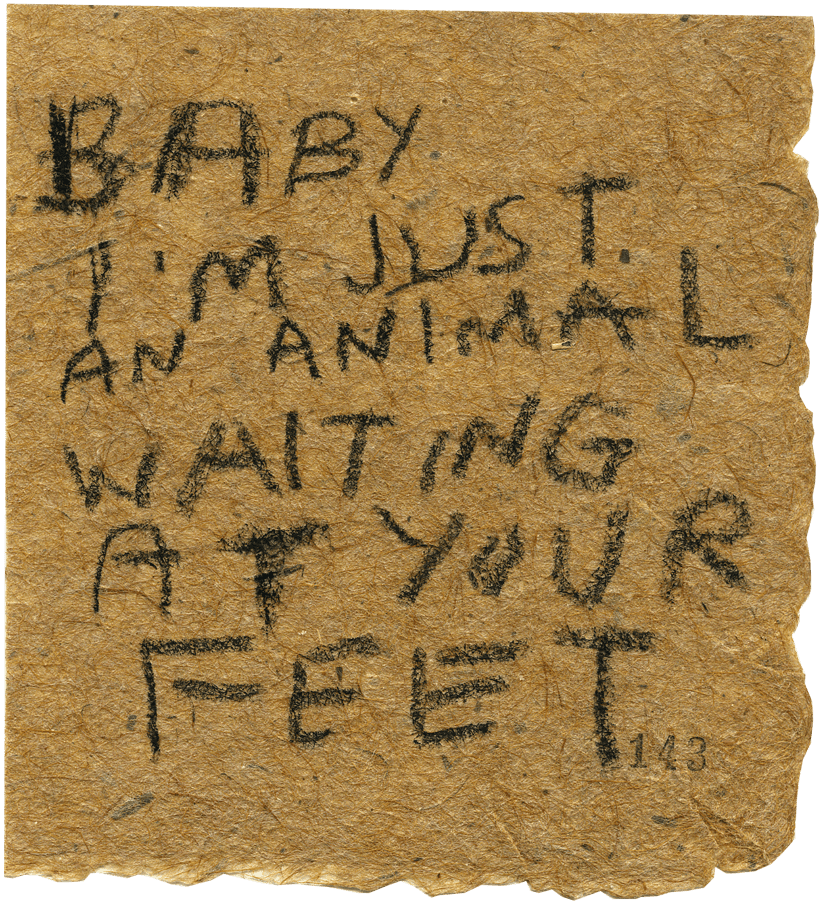 BABY
I'M JUST.
AN ANIMAL
WAITING
AT YOUR
FEET
143